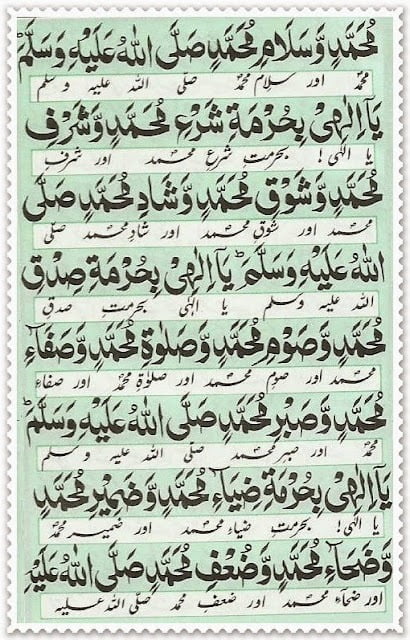 مُحَمَّدٍ وَّسَلَامِ مُحَمَّدٍ صَلَّى اللّٰهُ عَلَيْهِ وَسَلَّمَ ؕ
محمدؐ اور سلام محمدؐ صلی اللہ علیہ وسلم
يَآ اِلٰهِىْ بِحُرْمَةِ شَرْعِ مُحَمَّدٍ وَّشَرْفِ
یا الٰہی ! بحرمت شرع محمد اور شرف
مُحَمَّدٍ وَّشَوْقِ مُحَمَّدٍ وَّشَادِ مُحَمَّدٍ صَلَّى
محمد اور شوق محمد اور شاد محمد صلی
اللّٰهُ عَلَيْهِ وَسَلَّمَ ؕ يَآ اِلٰهِىْ بِحُرْمَةِ صِدْقِ
اللہ علیہ وسلم یا الٰہی بحرمت صدق
مُحَمَّدٍ وَّصَوْمِ مُحَمَّدٍ وَّصَلٰوةِ مُحَمَّدٍ وَّصَفَآءِ
محمد اور صوم محمد اور صلوٰۃ محمدؐ اور صفاء
مُحَمَّدٍ وَّصَبْرِ مُحَمَّدٍ صَلَّى اللّٰهُ عَلَيْهِ وَسَلَّمَ ؕ
محمدؐ اور صبر محمد صلی اللہ علیہ وسلم
يَآ اِلٰهِىْ بِحُرْمَةِ ضِيَآءِ مُحَمَّدٍ وَّضَمِيْرِ مُحَمَّدٍ
یا الٰہی ! بحرمت ضیاء محمد اور ضمیر محمدؐ
وَّضَحَآءِ مُحَمَّدٍ وَّضُعْفِ مُحَمَّدٍ صَلَّى اللّٰهُ عَلَيْهِ
اور ضحاء محمد اور ضعف محمد صلی اللہ علیہ